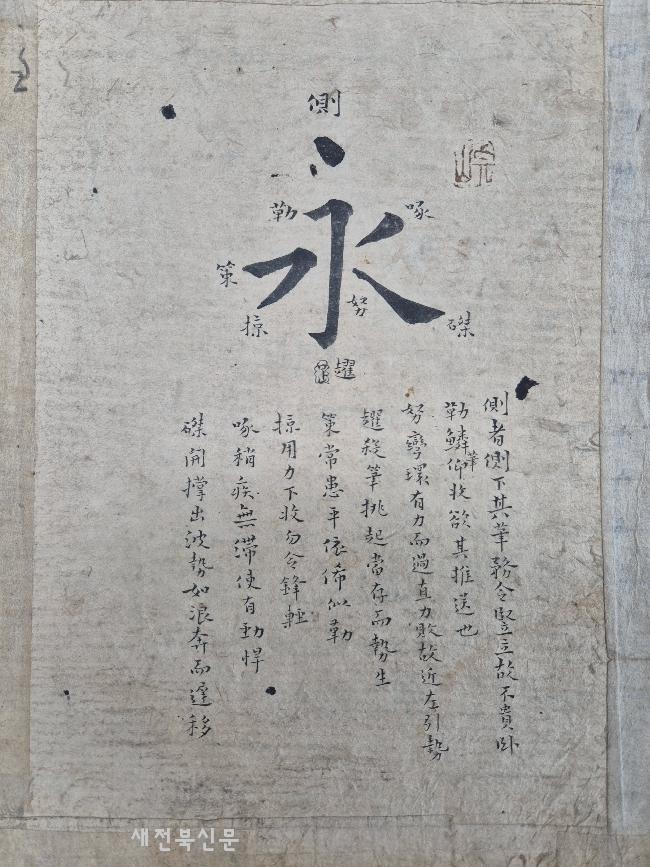 側
永
勒
啄
策
努
掠
磔
趯
側者側下其筆務令竪立故不貴卧
勒鱗筆仰收欲其推送也
努彎環有力而過直力敗故近左引勢
趯殺筆挑起當存而勢生
策常患平依俙似勒
掠用力下收勿令鋒輕
啄稍疾無滯使有勁悍
磔開撑出波勢如浪奔而遲移
새전북신문